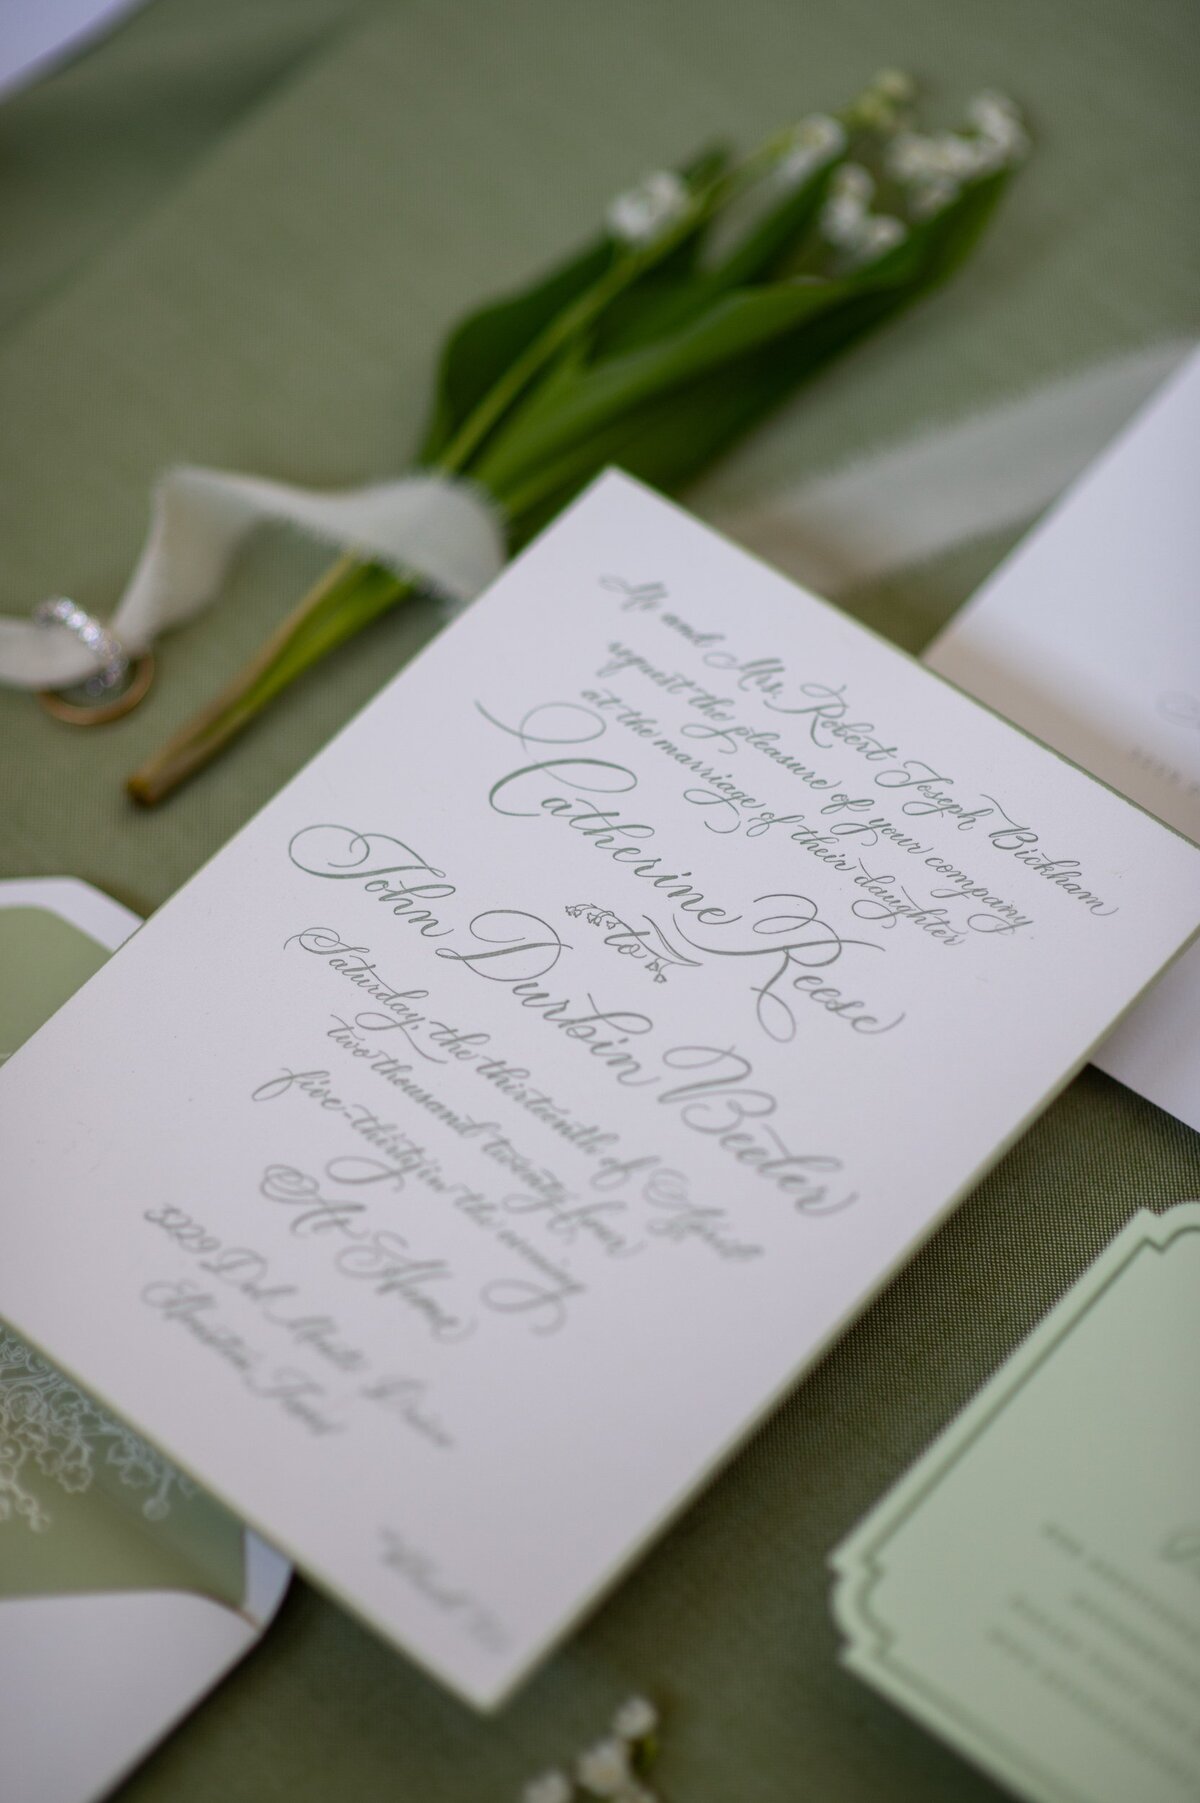 Mr and Mrs. Robert Joseph Bickham
request the pleasure of your company
at the marriage of their daughter
Catherine Reese
to
John Durbin Beeler
Saturday, the thirteenth of April
two thousand twenty four
five-thirty in the evening
At Home
3229 Del Monte Drive
Houston, Texas